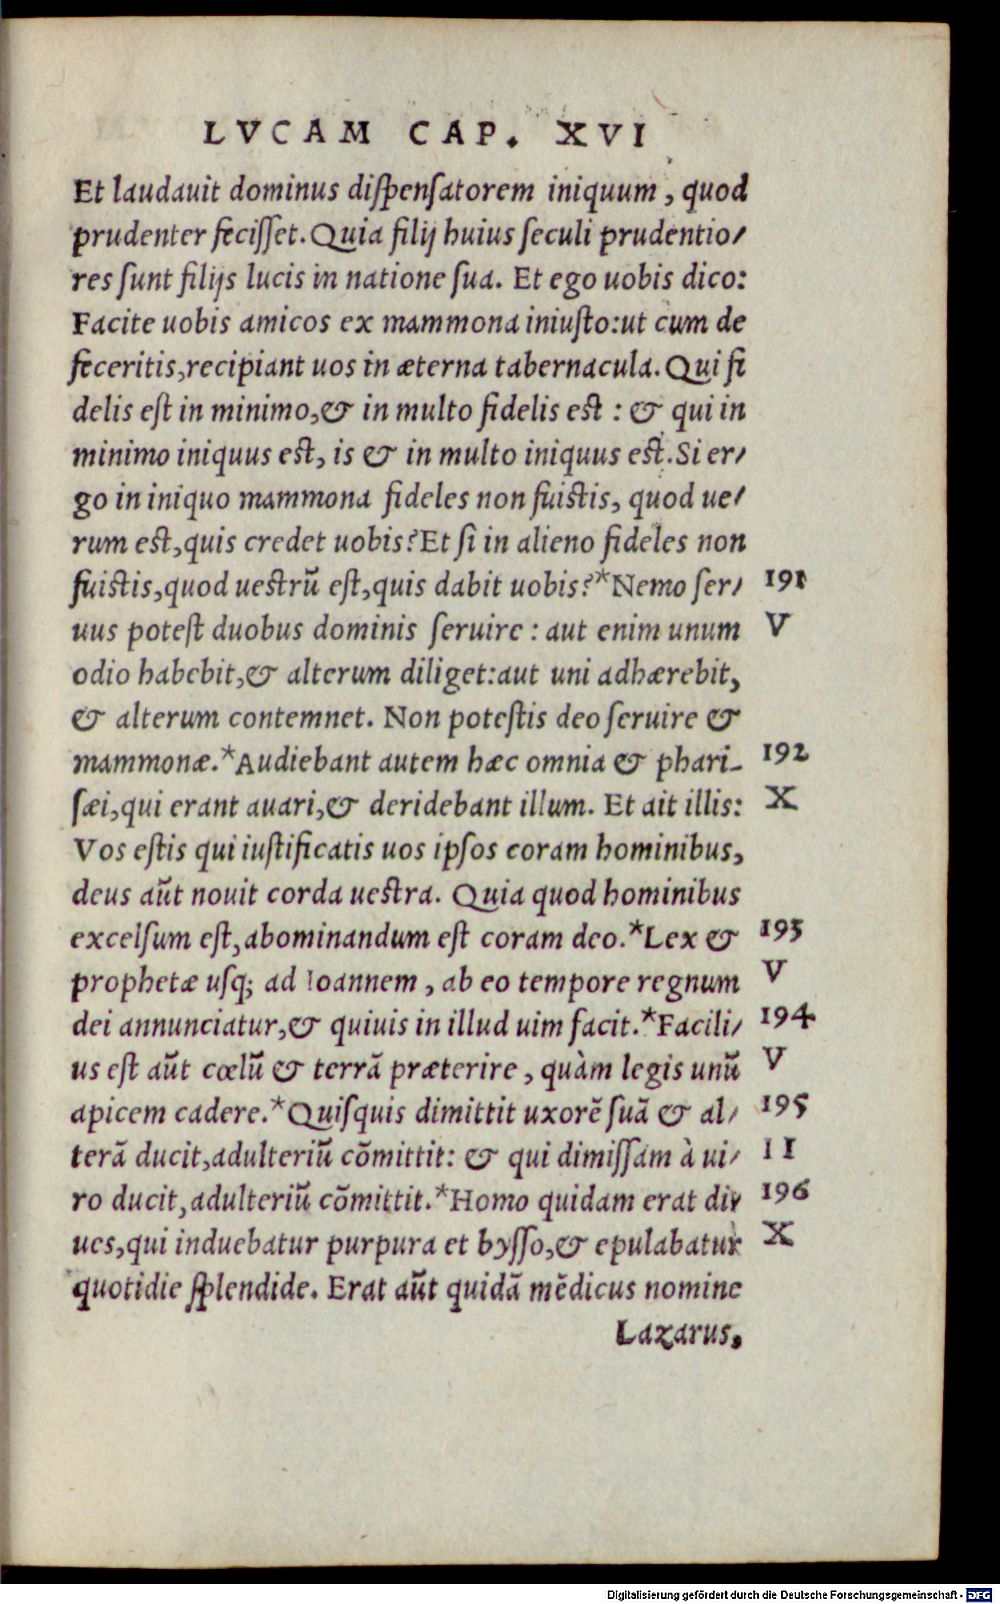 LVCAM CAP. XVI
Et laudauit dominus dispensatorem iniquum, quod
prudenter fecisset. Quia filij huius seculi prudentio/
res sunt filijs lucis in natione sua. Et ego uobis dico:
Facite uobis amicos ex mammona iniusto:ut cum de
feceritis,recipiant uos in æterna tabernacula. Qui fi
delis est in minimo,& in multo fidelis est : & qui in
minimo iniquus est, is & in multo iniquus est. Si er/
go in iniquo mammona fideles non fuistis, quod ue/
rum est,quis credet uobis? Et si in alieno fideles non
fuistis,quod uestrũ est,quis dabit uobis?*Nemo ser/ 191
uus potest duobus dominis seruire : aut enim unum V
odio habebit,& alterum diliget:aut uni adhærebit,
& alterum contemnet. Non potestis deo seruire &
mammonæ.*Audiebant autem hæc omnia & phari- 192
sæi,qui erant auari,& deridebant illum. Et ait illis: X
Vos estis qui iustificatis uos ipsos coram hominibus,
deus aũt nouit corda uestra. Quia quod hominibus
excelsum est,abominandum est coram deo.*Lex & 193
prophetæ usq; ad Ioannem, ab eo tempore regnum V
dei annunciatur,& quiuis in illud uim facit.*Facili/ 194
us est aũt cœlũ & terrã præterire, quàm legis unũ V
apicem cadere.*Quisquis dimittit uxorẽ suã & al/ 195
terã ducit,adulteriũ cõmittit: & qui dimissam à ui/ II
ro ducit,adulteriũ cõmittit.*Homo quidam erat di/ 196
ues,qui induebatur purpura et bysso,& epulabatur X
quotidie splendide. Erat aũt quidã mẽdicus nomine
Lazarus,
Digitalisierung gefördert durch die Deutsche Forschungsgemeinschaft - DFG